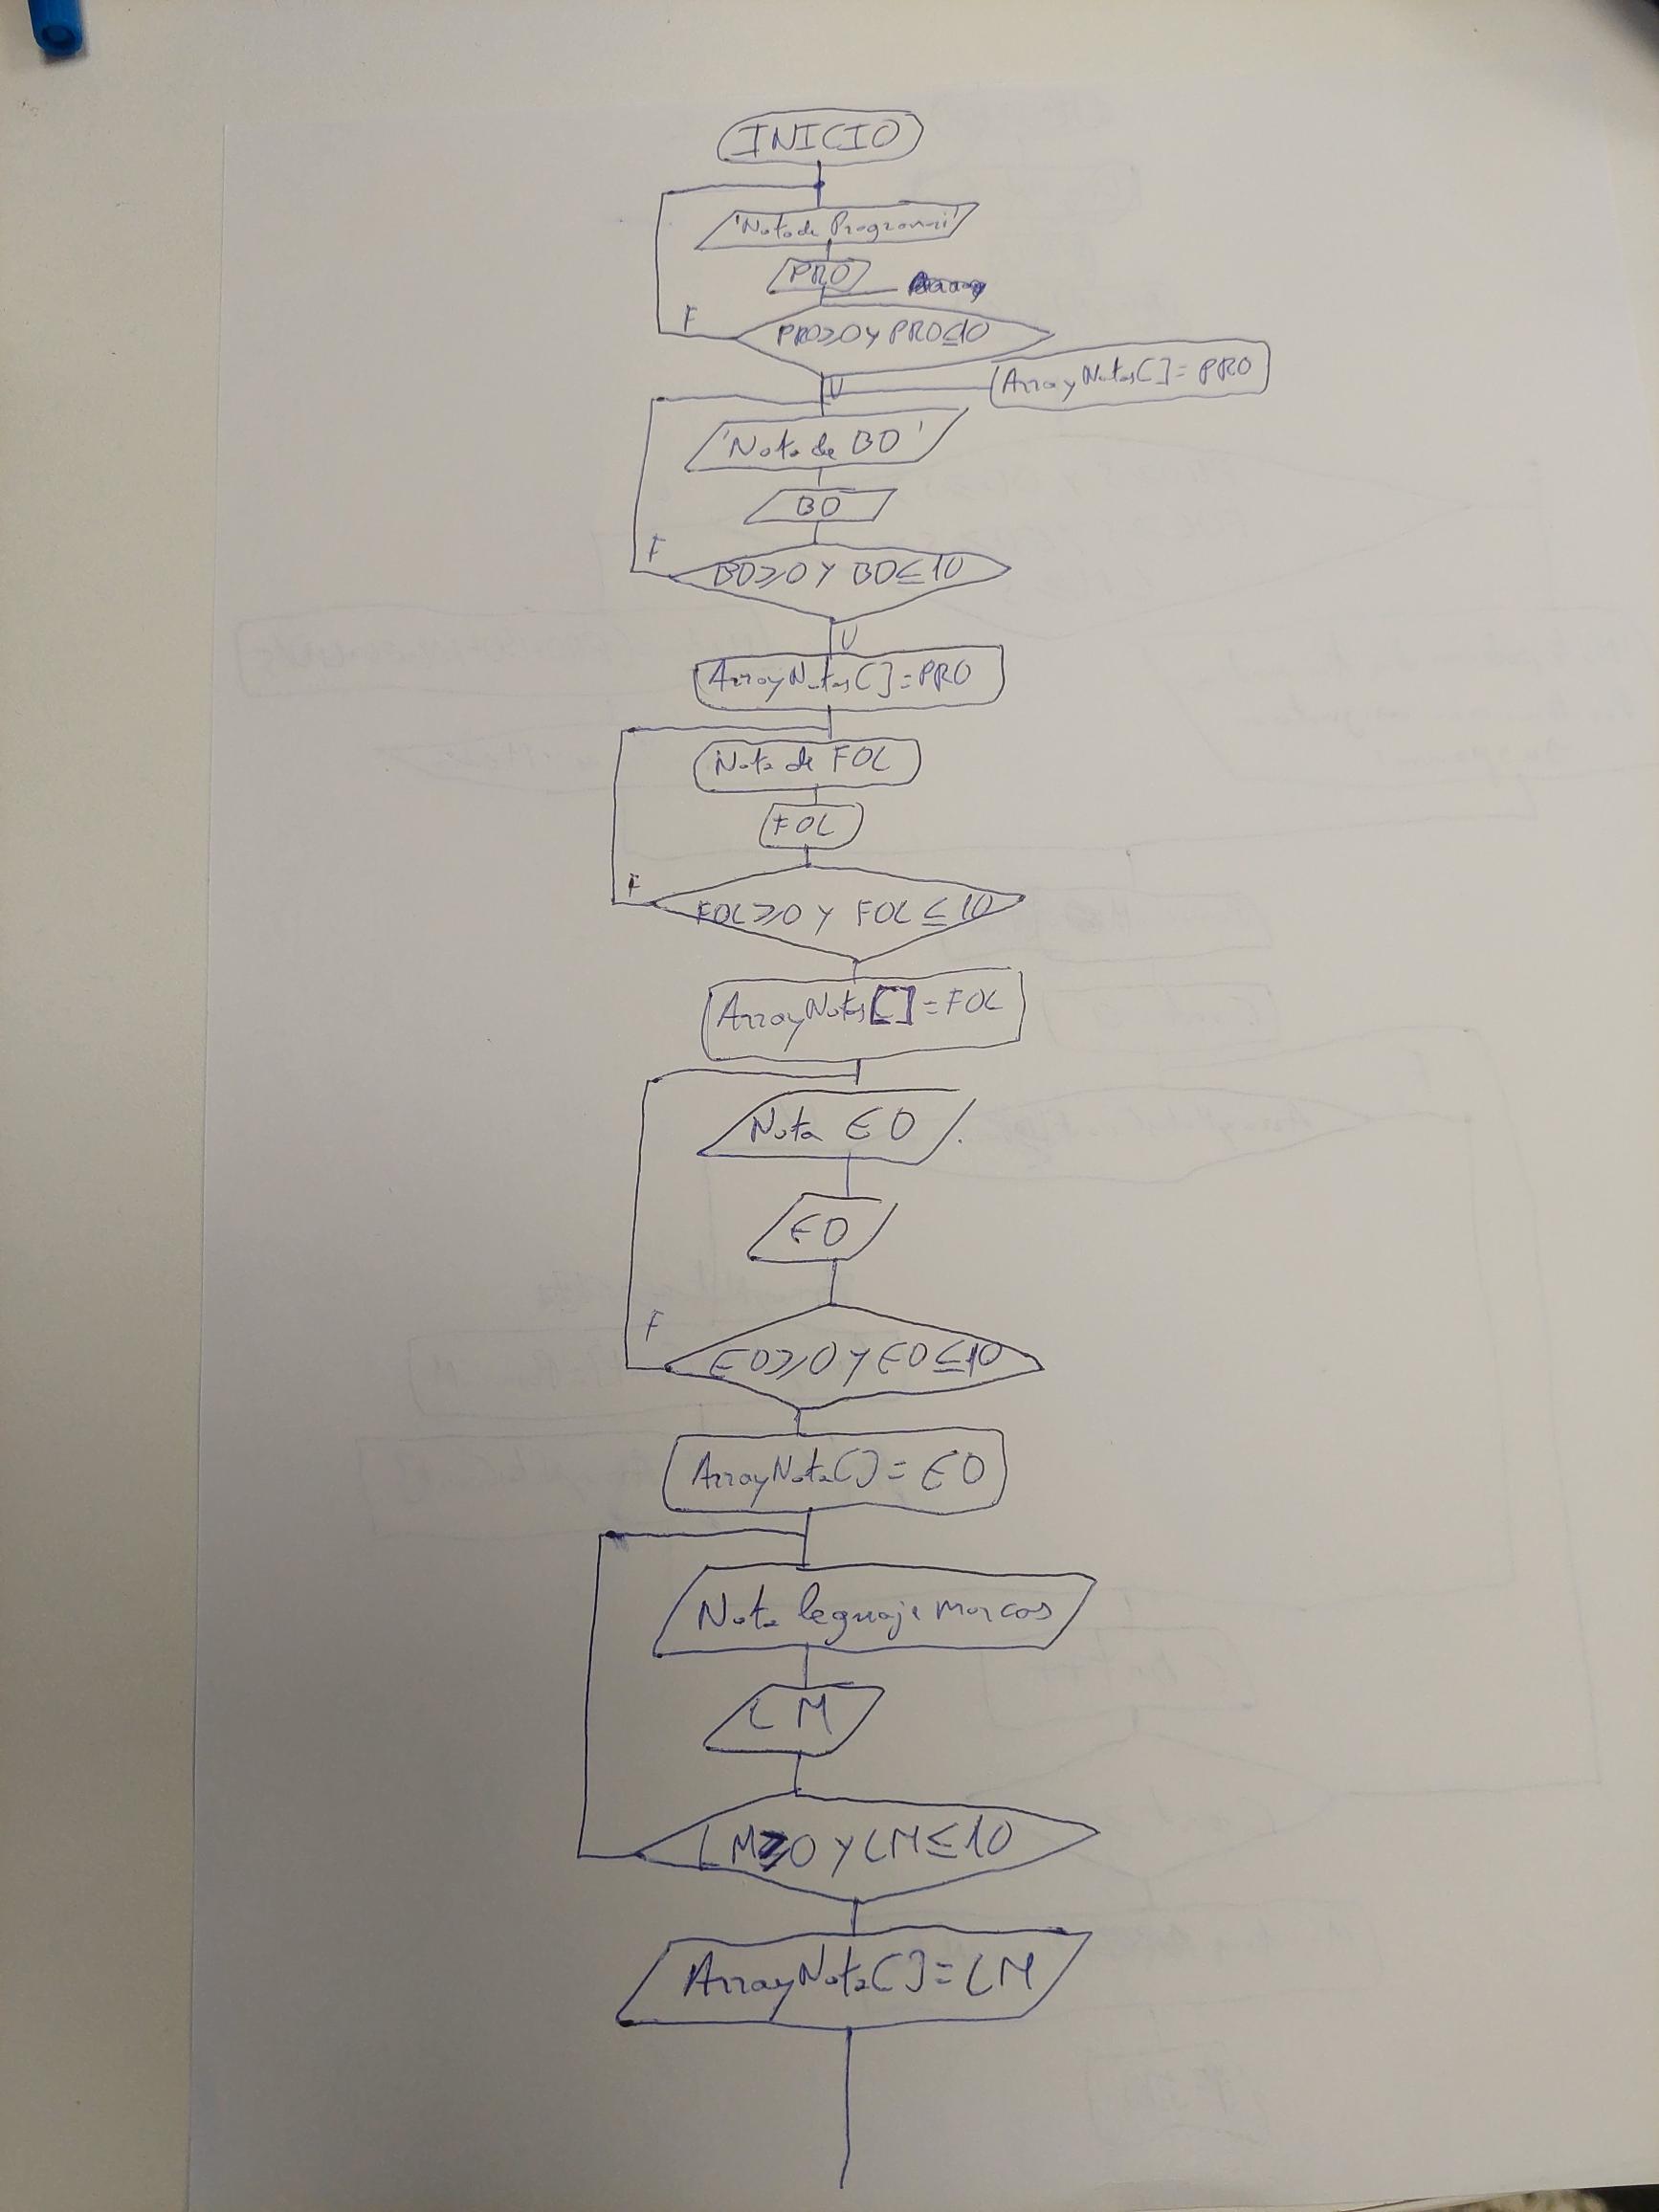 INICIO
'Nota de Programaci'
PRO
F
PRO≥0 y PRO≤10
V
ArrayNotas[]=PRO
'Nota de BD'
BD
F
BD≥0 y BD≤10
V
ArrayNotas[]=PRO
Nota de FOL
FOL
F
FOL≥0 y FOL≤10
ArrayNotas[]=FOL
Nota ED
ED
F
ED≥0 y ED≤10
ArrayNota[]=ED
Nota leguaje Marcas
LM
LM≥0 y LM≤10
ArrayNota[]=LM